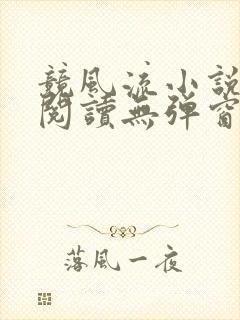 競風流小說
閱讀無彈窗
落風一夜